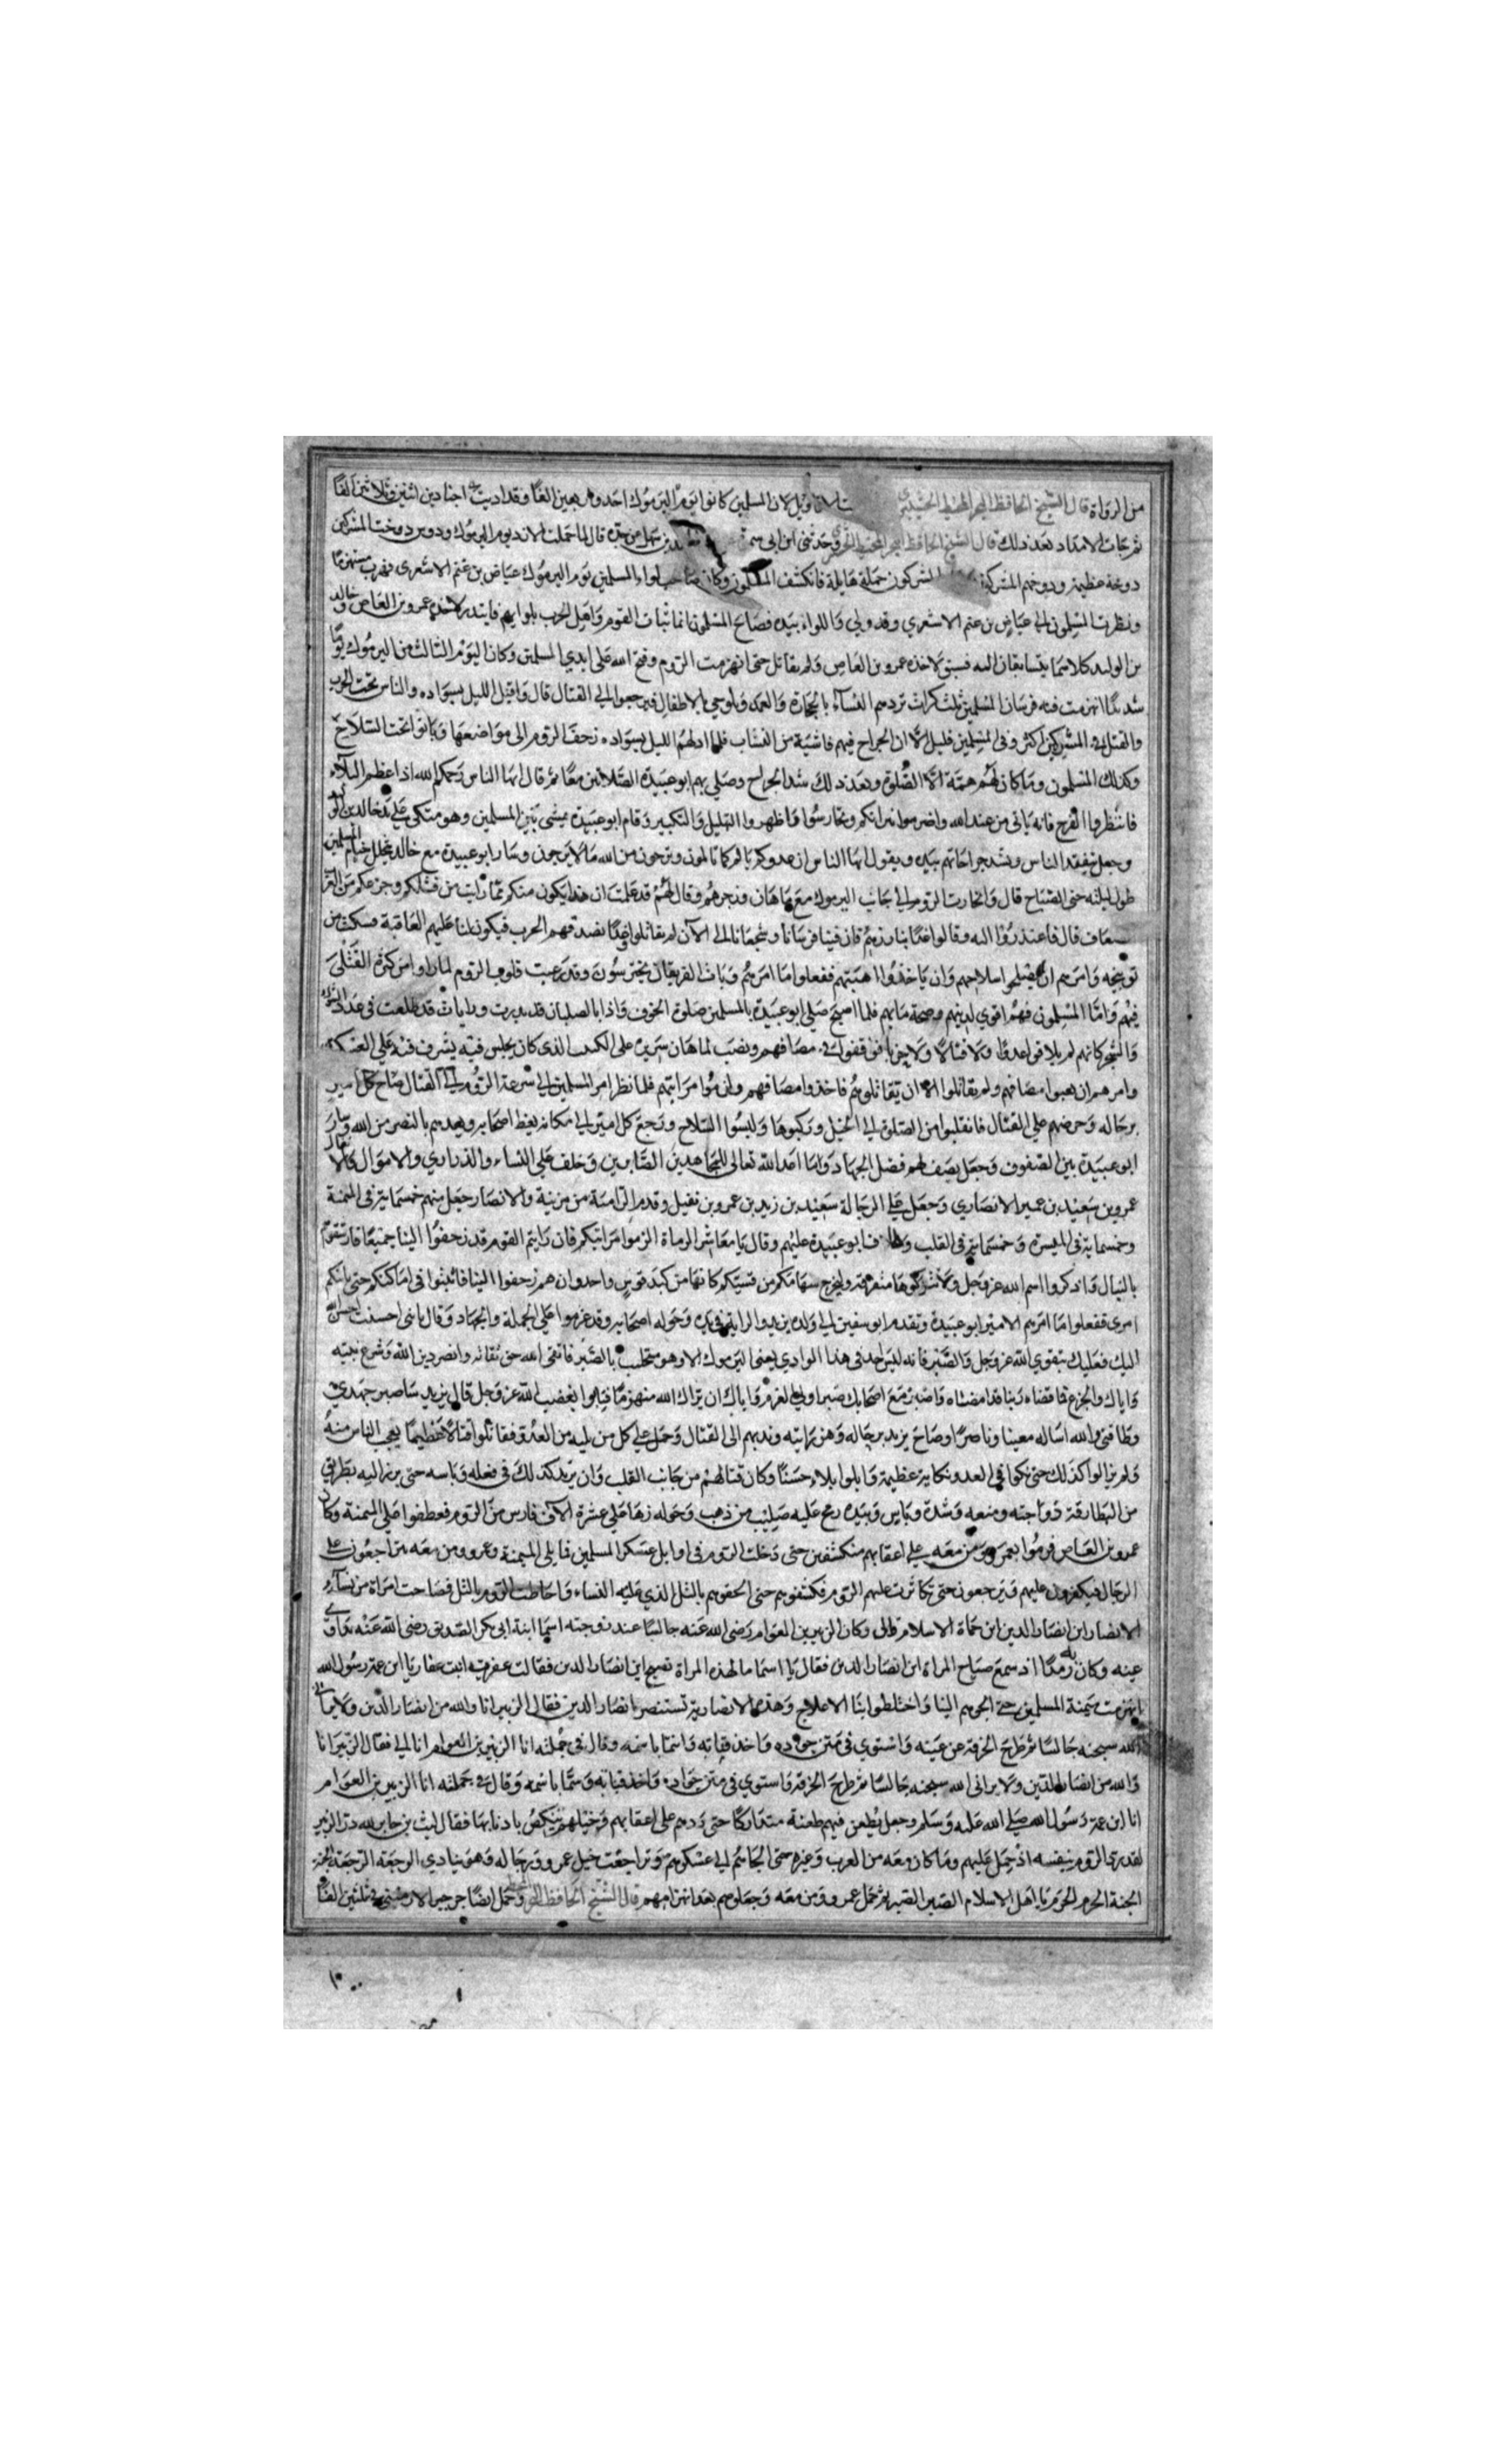 من الرواة قال الشيخ الحافظ لان المسلمين كانوا يوم اليرموك احد واربعين الفا وقد اديت اجنادين اثنين وثلاثين الفا
ثم جات الامداد بعد ذلك قال الشيخ الحافظ وحدثني ابن ابي قال لما حملت الازد يوم اليرموك ودوس دوخت المشركين
دوخة عظيمة ودوخهم المشركون حملة هايلة فانكشف المسلمون وكان صاحب لواء المسلمين يوم اليرموك عياض بن غنم الاشعري فهرب منهزما
ونظرت المسلمون الي عياض بن غنم الاشعري وقد ولي واللواء بيده فصاح المسلمون انما ثبات القوم واهل الحرب بلوايهم فابتدر لاخذه عمرو بن العاص وخالد
بن الوليد كلاهما يتسابقان اليه فسبق لاخذه عمرو بن العاص ولم يقاتل حتى انهزمت الروم وفتح الله على ايدي المسلمين وكان اليوم الثالث من اليرموك يوما
شديدا انهزمت فيه فرسان المسلمين ثلث كرات تردهم النسآء بالحجارة والعمد ويلوحن بالاطفال فيرجعوا الي القتال قال واقبل الليل بسواده والناس تحت الحرب
والقتل في المشركين اكثر وفي المسلمين قليل الا ان الجراح فيهم فاشية من النشاب فلما ادلهم الليل بسواده زحف الروم الى مواضعها وباتوا تحت السلاح
وكذلك المسلمون وما كان لهم همة الا الصلوة وبعد ذلك شد الجراح وصلي بهم ابو عبيدة الصلاتين معا ثم قال ايها الناس رحمكم الله اذا عظم البلآء
فانتظروا الفرج فانه ياتي من عند الله واضرموا نيرانكم وتحارسوا واظهروا التهليل والتكبير وقام ابو عبيدة يمشي بين المسلمين وهو متكي علي يد خالد بن الوليد
وجعل يتفقد الناس ويشد جراحاتهم بيده ويقول ايها الناس ان عدوكم يالم كما تالمون وترجون من الله ما لا يرجون وسار ابو عبيدة مع خالد يتخلل خيام المسلمين
طول ليلته حتى الصباح قال وانحازت الروم الي جانب اليرموك مع ماهان وزجرهم وقال لهم قد علمت ان هذا يكون منكم مما رايت من فشلكم وجزعكم من العرب
قال فاعتذروا اليه وقالوا غدا نبارزهم فان فينا فرسانا وشجعانا الى الان لم يقاتلوا وغدا نصدقهم الحرب فيكون لنا عليهم العاقبة فسكت من
توبيخه وامرهم ان يصلحوا سلاحهم وان ياخذوا اهبتهم ففعلوا ما امرهم وبات الفريقان يحترسون وقد رعبت قلوب الروم لما راوا من كثرة القتلى
فيهم واما المسلمون فهم اقوي لدينهم وصحة ما بهم فلما اصبح صلى ابو عبيدة بالمسلمين صلوة الخوف واذا بالصلبان قد بدرت ورايات قد طلعت في عدد الشوك
والشجر كانهم لم يلاقوا عدوا ولا قتالا ولا حربا فوقفوا في مصافهم ونصب لماهان سريره على الكثيب الذي كان يجلس فيه يشرف فيه علي العسكر
وامرهم ان يعبوا مصافهم ولم يقاتلوا الا ان يقاتلوهم فاخذوا مصافهم ولزموا مراتبهم فلما نظر امر المسلمين الي سرعة الروم الي القتال صاح كل امير
برجاله وحرضهم علي القتال فانقلبوا من الصلوة الي الخيل وركبوها ولبسوا السلاح ورجع كل امير الي مكانه يعظ اصحابه ويعدهم بالنصر من الله وسار
ابو عبيدة بين الصفوف وجعل يصف لهم فضل الجهاد وما اعد الله تعالى للمجاهدين الصابرين وخلف علي النساء والذراري والاموال والاثقال
عمرو بن سعيد بن عمير الانصاري وجعل علي الرجالة سعيد بن زيد بن عمرو بن نفيل وقدم الرامية من مزينة والانصار جعل منهم خمسماية في الميمنة
وخمسماية في الميسرة وخمسماية في القلب وطاف ابو عبيدة عليهم وقال يا معاشر الرماة الزموا مراتبكم فان رايتم القوم قد زحفوا الينا جميعا فارشقوهم
بالنبال واذكروا اسم الله عز وجل ولا تتركوها متفرقة وليخرج سهامكم من قسيكم كانها من كبد قوس واحد وان هم زحفوا الينا فاثبتوا في اماكنكم حتى ياتيكم
امري ففعلوا ما امرهم الامير ابو عبيدة وتقدم ابو سفين الي ولده يزيد والراية في يده وحوله اصحابه وقد عزموا علي الحملة والجهاد وقال يا بني احسنت احسن الله
اليك فعليك بتقوي الله عز وجل والصبر فانه ليس احد في هذا الوادي يعني اليرموك الا وهو متجلبب بالصبر فاتق الله حق تقاته وانصر دين الله وشرع نبيه
واياك والجزع فما قضاء ربنا قد امضاه واصبر مع اصحابك صبر اولي العزم واياك ان يراك الله منهزما فتبوء بغضب الله عز وجل قال يزيد ساصبر جهدي
وطاقتي والله اساله معينا وناصرا وصاح يزيد برجاله وهز رايته وندبهم الى القتال وحمل علي كل من يليه من العدو فقاتلوا قتالا عظيما يعجب الناس منه
ولم يزالوا كذلك حتى نكوا في العدو نكاية عظيمة وابلوا بلاء حسنا وكان قتالهم من جانب القلب وان يزيد كذلك في فعله وباسه حتى برز اليه بطريق
من البطارقة ومنعه وشدة وباس وبيده رمح عليه صليب من ذهب وحوله زها علي عشرة الاف فارس من الروم فعطفوا علي الميمنة وكان
عمرو بن العاص فرموا بعمرو ومن معه علي اعقابهم منكشفين حتى دخلت الروم في اوايل عسكر المسلمين فما يلي الميمنة وعمرو ومن معه يتراجعون علي
الرجال فيكفرون عليهم ويرجعون حتى تكاثرت عليهم الروم فكشفوهم حتى الحقوهم بالتل الذي عليه النساء واحاطت الروم بالتل فصاحت امراة من نسآء
الانصار اين انصار الدين اين حماة الاسلام قال وكان الزبير بن العوام رضي الله عنه جالسا عند زوجته اسما ابنة ابي بكر الصديق رضي الله عنه تداوي
عينه وكان به رمدا اذ سمع صياح المراة اين انصار الدين فقال يا اسما ما لهذه المراة تصيح اين انصار الدين فقالت عفيرة ابنت عفار يا ابن عمة رسول الله
انهزمت ميمنة المسلمين حتى الجوهم الينا واختلطوا بنا الاعلاج وهذه الانصارية تستنصر انصار الدين فقال الزبير انا والله من انصار الدين ولا يراني
الله سبحنه جالسا ثم طرح الخرقة عن عينه واستوي في متن جواده واخذ قناته واسما باسمه وقال في حملته انا الزبير بن العوام انا الي فقال الزبير انا
والله من انصار الدين ولا يراني الله سبحنه جالسا ثم طرح الخرقة واستوي في متن جواده واخذ قناته وسما باسمه وقال في حملته انا الزبير بن العوام
انا ابن عمة رسول الله صلي الله عليه وسلم وجعل يطعن فيهم طعنة متداركا حتى ردهم على اعقابهم وخيلهم تنكص باذنابها فقال ليث بن جابر لله در الزبير
لقد ردي الروم بنفسه اذ حمل عليهم وما كان معه من العرب وغيره حتى الجاهم الي عسكرهم وتراجعت خيل عمرو ورجاله وهو ينادي الرجعة الرجعة الجنة
الجنة الحزم الحزم يا اهل الاسلام الصبر الصبر ثم حمل عمرو ومن معه وجعلوهم بعد انهزامهم قال الشيخ الحافظ وحمل ايضا جرجير الارمني في ثلثين الفا